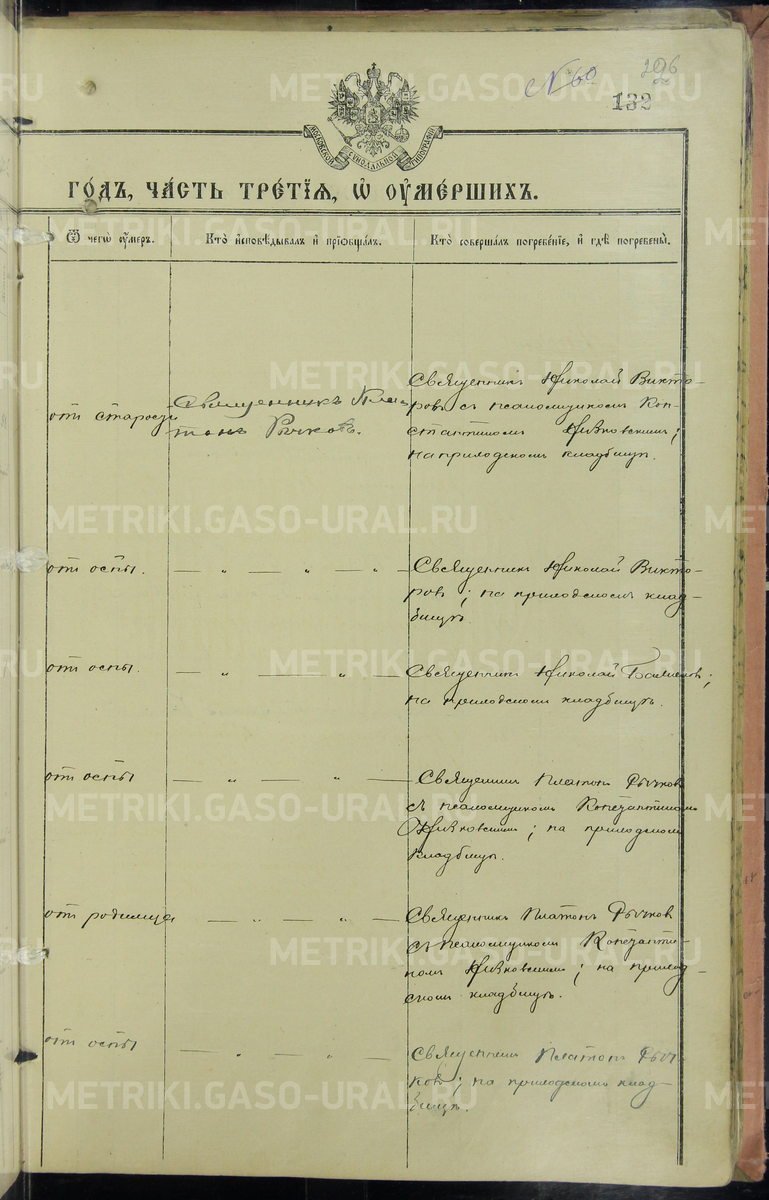 № 60
296
132
МОСКОВСКОЙ СѴНОДАЛЬНОЙ ТИПОГРАФІИ
ГО́ДЪ, ЧА́СТЬ ТРЕ́ТІѦ, Ѽ ОУ҆МЕ́РШИХЪ.
Ѿ чегѡ̀ оу҆́меръ.
Кто̀ и҆сповѣ́дывалъ и҆ прїѡбща́лъ.
Кто̀ соверша́лъ погребе́нїе, и҆ гдѣ̀ погребены̀.
отъ старости
Священникъ Пла-
тонъ Рычковъ.
Священникъ Николай Викто-
ровъ съ псаломщикомъ Кон-
стантиномъ
на приходскомъ кладбищѣ.
отъ оспы.
— „ — „ — „ —
Священникъ Николай Викто-
ровъ; на приходскомъ клад-
бищѣ
отъ оспы.
— „ — „ —
Священникъ Николай
на приходскомъ кладбищѣ.
отъ оспы
— „ — „ —
Священникъ Платонъ Рычковъ
съ псаломщикомъ Константиномъ
; на приходскомъ
кладбищѣ.
отъ родимца
— „ — „ —
Священникъ Платонъ Рычков
съ псаломщикомъ Константи-
номъ ; на приход-
скомъ кладбищѣ.
отъ оспы
— „ — „ —
Священникъ Платонъ Рыч-
ковъ; на приходскомъ клад-
бищѣ.
METRIKI.GASO-URAL.RU